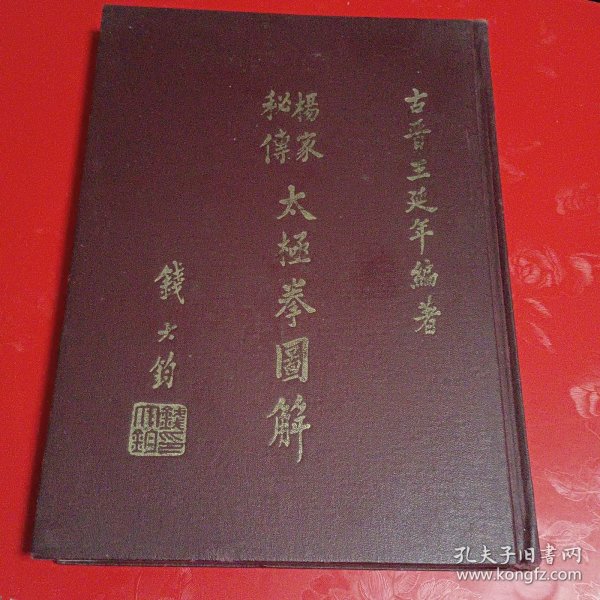 古晉王延年編著
楊家
秘傳
太極拳圖解
錢大鈞
孔夫子旧书网
www.kongfz.com